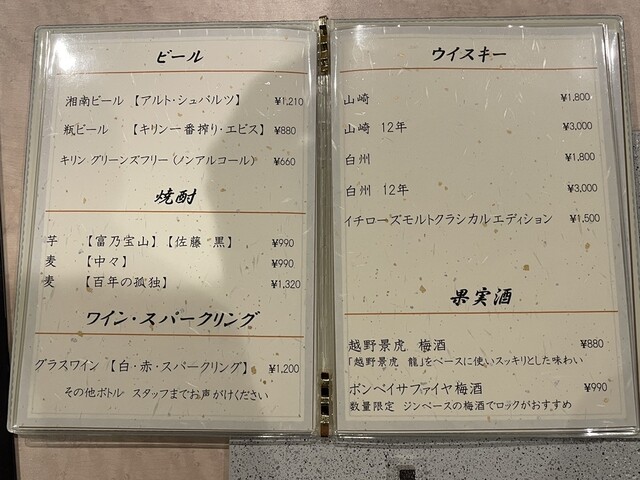 ビール
湘南ビール 【アルト・シュバルツ】 ¥1,210
瓶ビール 【キリン一番搾り・エビス】 ¥880
キリン グリーンズフリー（ノンアルコール） ¥660
焼酎
芋 【富乃宝山】【佐藤 黒】 ¥990
麦 【中々】 ¥990
麦 【百年の孤独】 ¥1,320
ワイン・スパークリング
グラスワイン 【白・赤・スパークリング】 ¥1,200
その他ボトル スタッフまでお声がけください
ウイスキー
山崎 ¥1,800
山崎 12年 ¥3,000
白州 ¥1,800
白州 12年 ¥3,000
イチローズモルトクラシカルエディション ¥1,500
果実酒
越野景虎 梅酒 ¥880
「越野景虎 龍」をベースに使いスッキリとした味わい
ボンベイサファイヤ梅酒 ¥990
数量限定 ジンベースの梅酒でロックがおすすめ